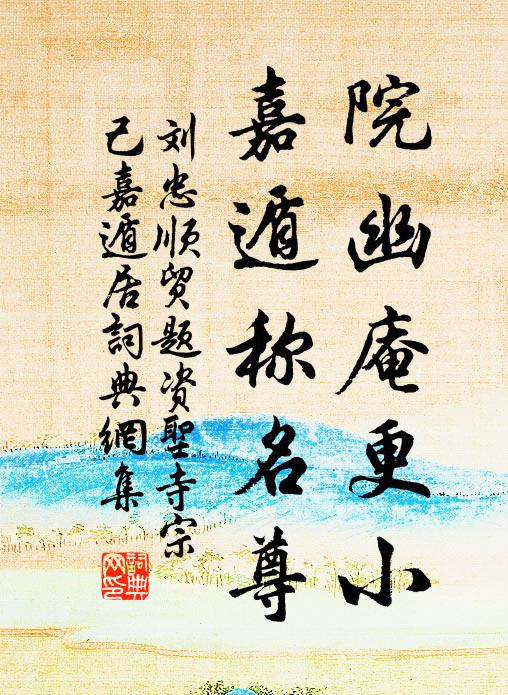 院幽庵更小
嘉遁称名尊
刘忠顺贸题资聖寺宗
己嘉遁居詞典網集
詞典